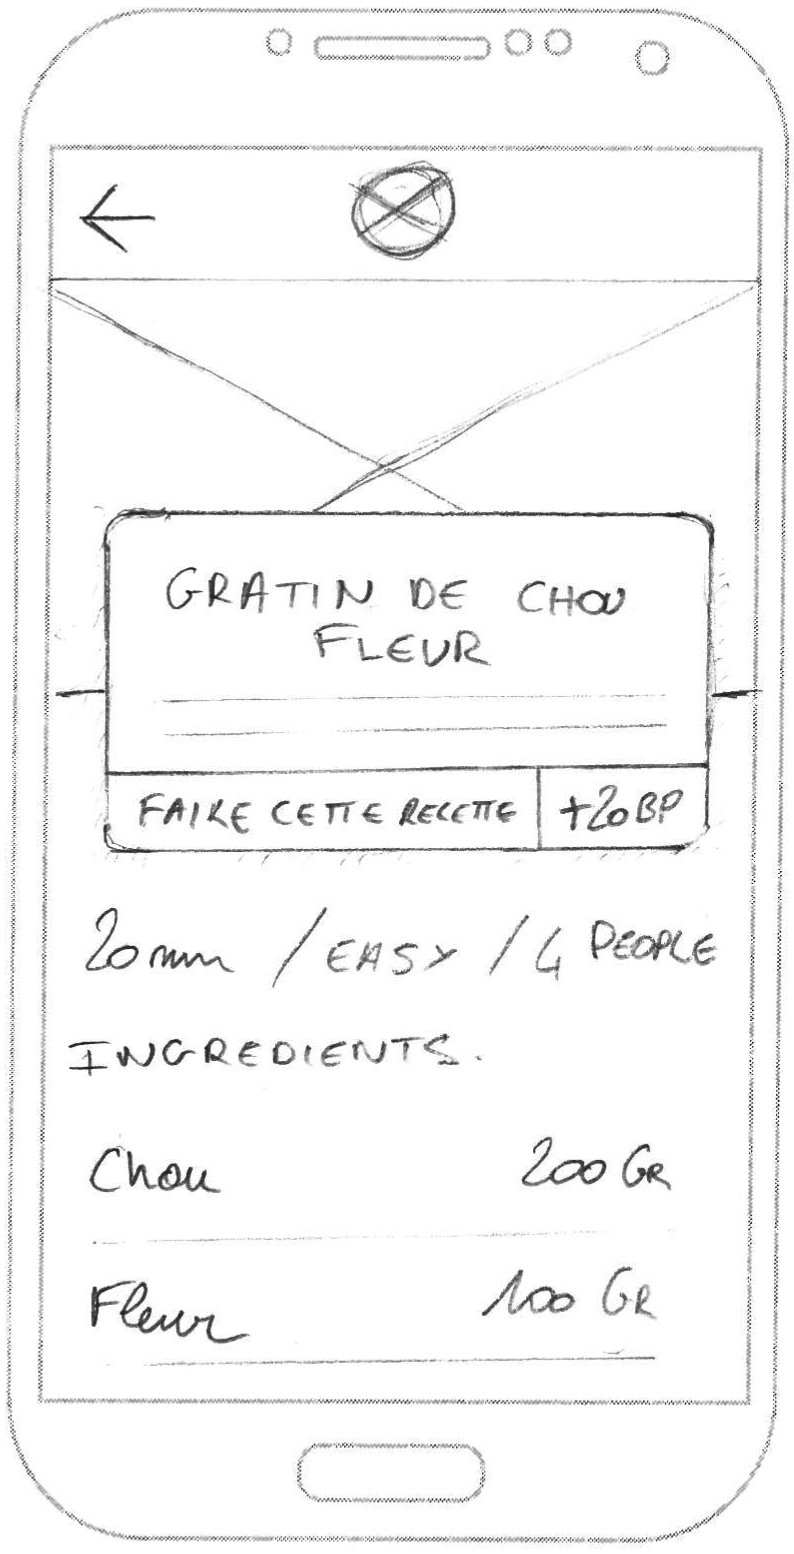 GRATIN DE CHOU
FLEUR
FAIRE CETTE RECETTE +20BP
20 min / EASY / 4 PEOPLE
INGREDIENTS.
Chou 200 GR
Fleur 100 GR